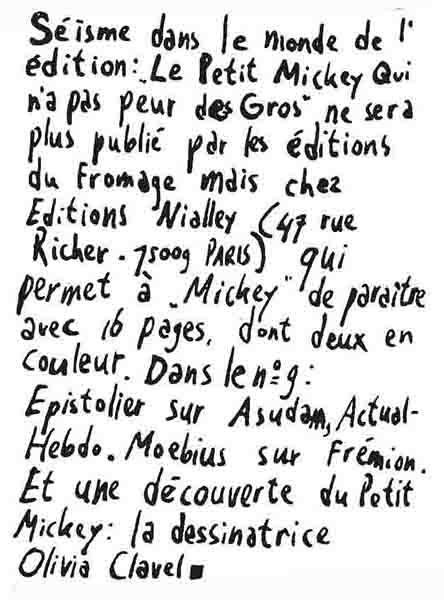 Séisme dans le monde de l'
édition: „Le Petit Mickey Qui
n'a pas peur des Gros" ne sera
plus publié par les éditions
du Fromage mais chez
Editions Nialley (47 rue
Richer. 75009 PARIS) qui
permet à „Mickey" de paraître
avec 16 pages, dont deux en
couleur. Dans le nº9:
Epistolier sur Asudam, Actual-
Hebdo. Moebius sur Frémion.
Et une découverte du Petit
Mickey: la dessinatrice
Olivia Clavel